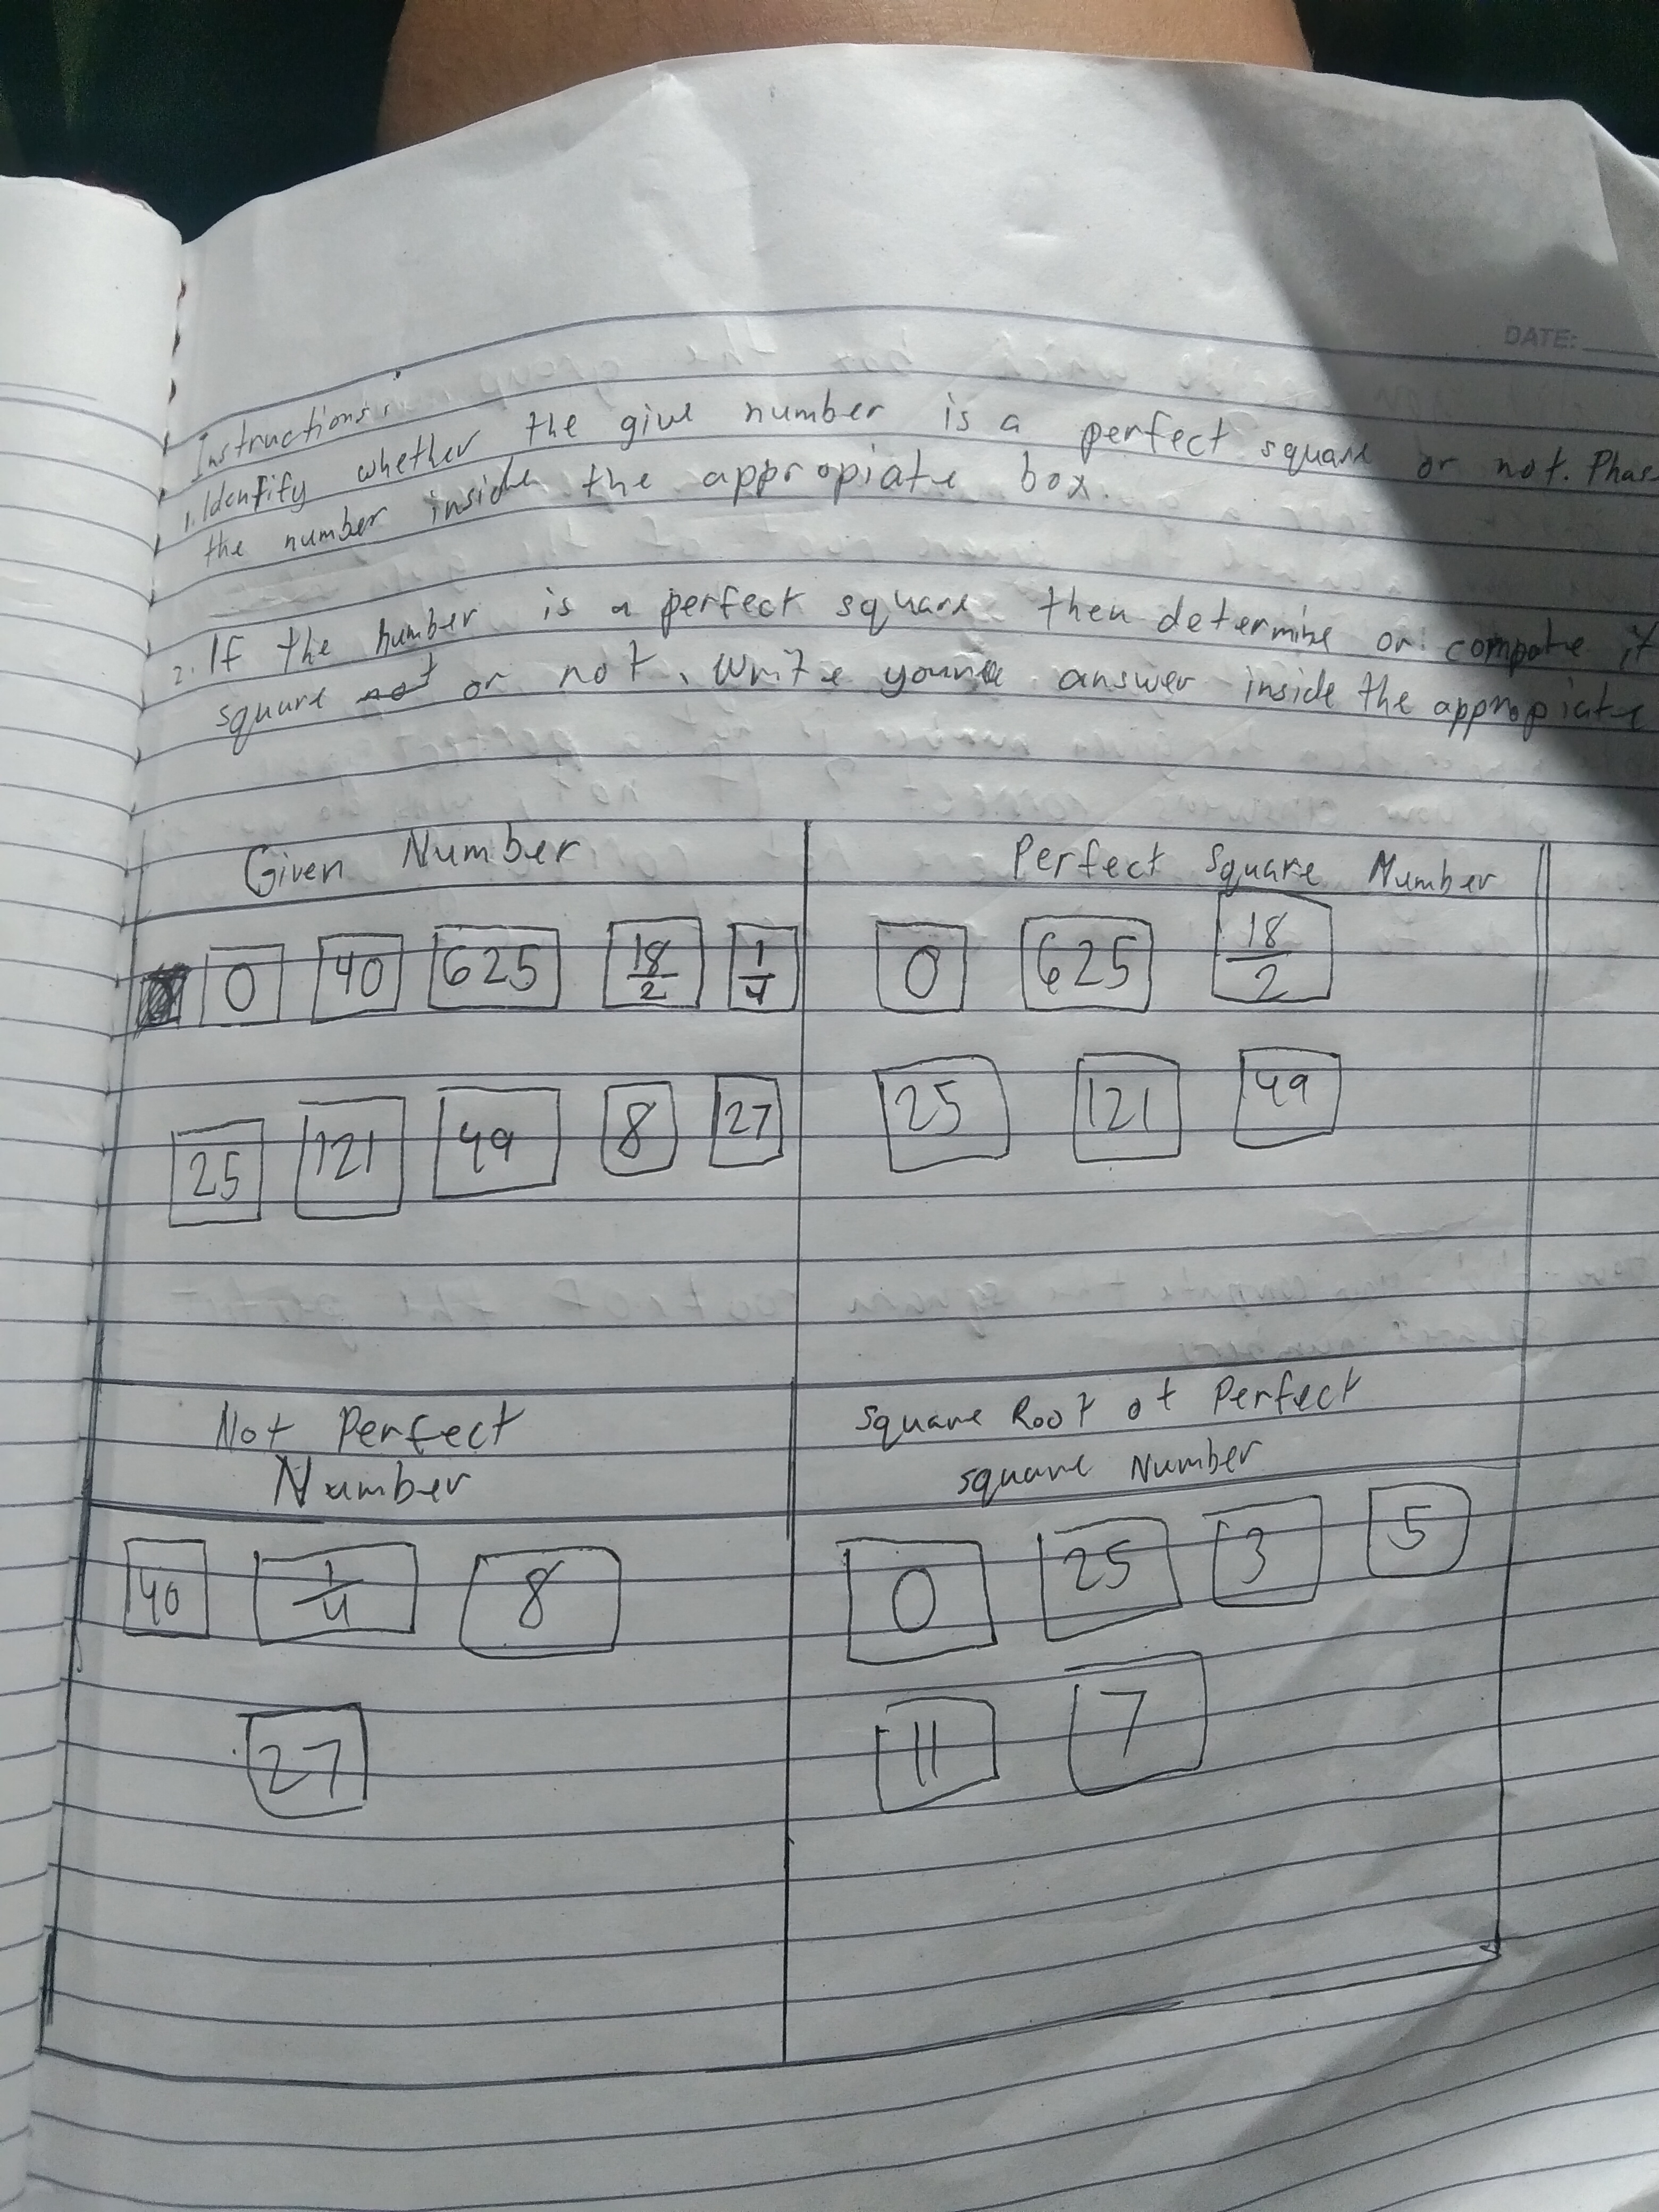 DATE:
Instructions:
1. Idenfify whether the give number is a perfect square or not. Phas
the number inside the appropiate box.
2. If the number is a perfect square then determine or compate it
square not or not. Write your answer inside the appropiate
Given Number
0 40 625 18/2 1/4
25 121 49 8 27
Perfect Square Number
0 625 18/2
25 121 49
Not Perfect
Number
40 1/4 8
27
Square Root of Perfect
square Number
0 25 3 5
11 7